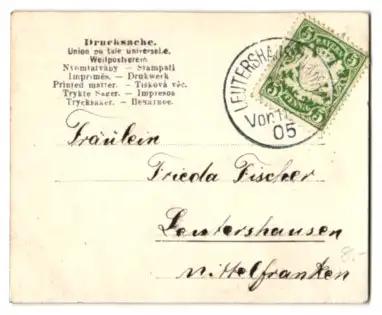 Drucksache.
Union postale universelle.
Weltpostverein
Nyomtatvány — Stampati
Imprimés. — Drukwerk
Printed matter. — Tisková věc.
Trykte Sager. — Impresos
Trycksaker. — Печатное.
LEUTERSHAUSEN
Vor
05
5
5
Fräulein
Frieda Fischer
Leutershausen
Mittelfranken
8.-